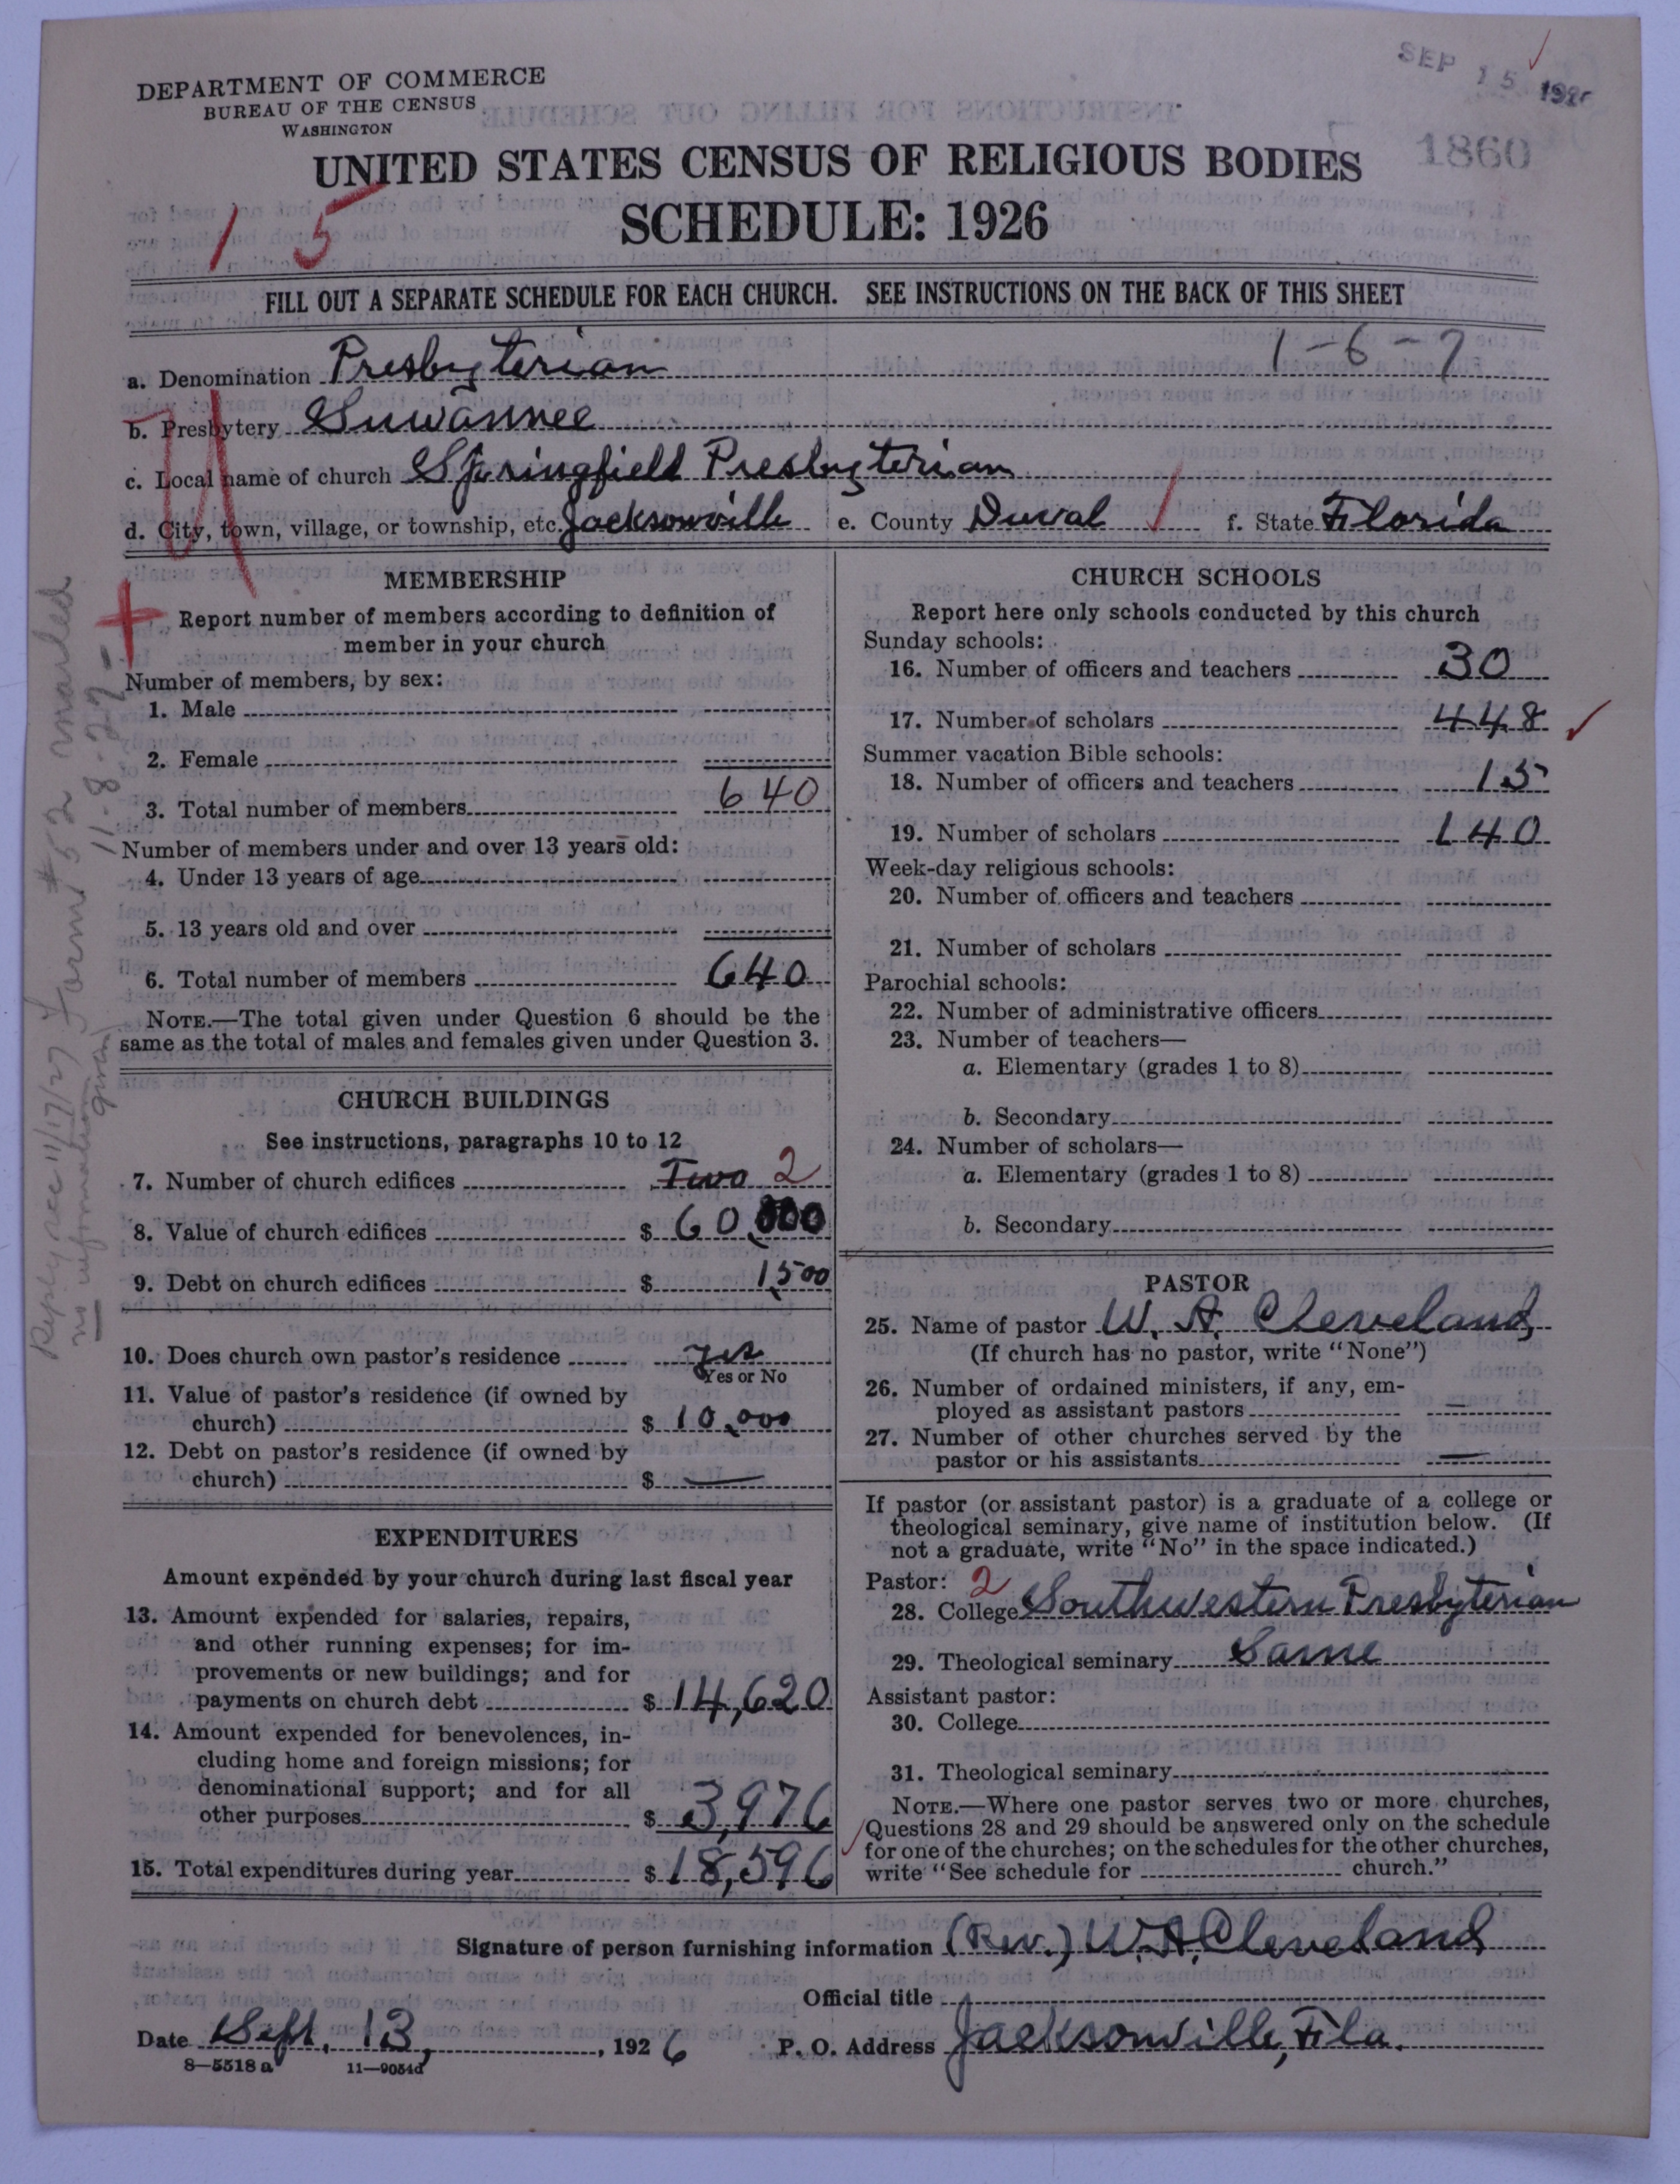 DEPARTMENT OF COMMERCE
BUREAU OF THE CENSUS
WASHINGTON
SEP 15 1926
1860
UNITED STATES CENSUS OF RELIGIOUS BODIES
SCHEDULE: 1926
1 5
FILL OUT A SEPARATE SCHEDULE FOR EACH CHURCH. SEE INSTRUCTIONS ON THE BACK OF THIS SHEET
1-6-7
a. Denomination Presbyterian
b. Presbytery Suwannee
c. Local name of church Springfield Presbyterian
d. City, town, village, or township, etc. Jacksonville e. County Duval f. State Florida
MEMBERSHIP
Report number of members according to definition of
member in your church
Number of members, by sex:
1. Male
2. Female
3. Total number of members 640
Number of members under and over 13 years old:
4. Under 13 years of age
5. 13 years old and over
6. Total number of members 640
NOTE.—The total given under Question 6 should be the
same as the total of males and females given under Question 3.
CHURCH BUILDINGS
See instructions, paragraphs 10 to 12
7. Number of church edifices Two 2
8. Value of church edifices $ 60,000
9. Debt on church edifices $ 1,500
10. Does church own pastor's residence yes
Yes or No
11. Value of pastor's residence (if owned by
church) $ 10,000
12. Debt on pastor's residence (if owned by
church) $ —
EXPENDITURES
Amount expended by your church during last fiscal year
13. Amount expended for salaries, repairs,
and other running expenses; for im-
provements or new buildings; and for
payments on church debt $ 14,620
14. Amount expended for benevolences, in-
cluding home and foreign missions; for
denominational support; and for all
other purposes $ 3,976
15. Total expenditures during year $ 18,596
CHURCH SCHOOLS
Report here only schools conducted by this church
Sunday schools:
16. Number of officers and teachers 30
17. Number of scholars 448
Summer vacation Bible schools:
18. Number of officers and teachers 15
19. Number of scholars 140
Week-day religious schools:
20. Number of officers and teachers
21. Number of scholars
Parochial schools:
22. Number of administrative officers
23. Number of teachers—
a. Elementary (grades 1 to 8)
b. Secondary
24. Number of scholars—
a. Elementary (grades 1 to 8)
b. Secondary
PASTOR
25. Name of pastor W. A. Cleveland
(If church has no pastor, write "None")
26. Number of ordained ministers, if any, em-
ployed as assistant pastors —
27. Number of other churches served by the
pastor or his assistants —
If pastor (or assistant pastor) is a graduate of a college or
theological seminary, give name of institution below. (If
not a graduate, write "No" in the space indicated.)
Pastor: 2
28. College Southwestern Presbyterian
29. Theological seminary Same
Assistant pastor:
30. College
31. Theological seminary
NOTE.—Where one pastor serves two or more churches,
Questions 28 and 29 should be answered only on the schedule
for one of the churches; on the schedules for the other churches,
write "See schedule for church."
Signature of person furnishing information (Rev.) W. A. Cleveland
Official title
Date Sept. 13, 1926 P. O. Address Jacksonville, Fla.
8-5518 a 11-9054d
Form #52 mailed
11-8-27-
Reply rec 11/17/27
no information given